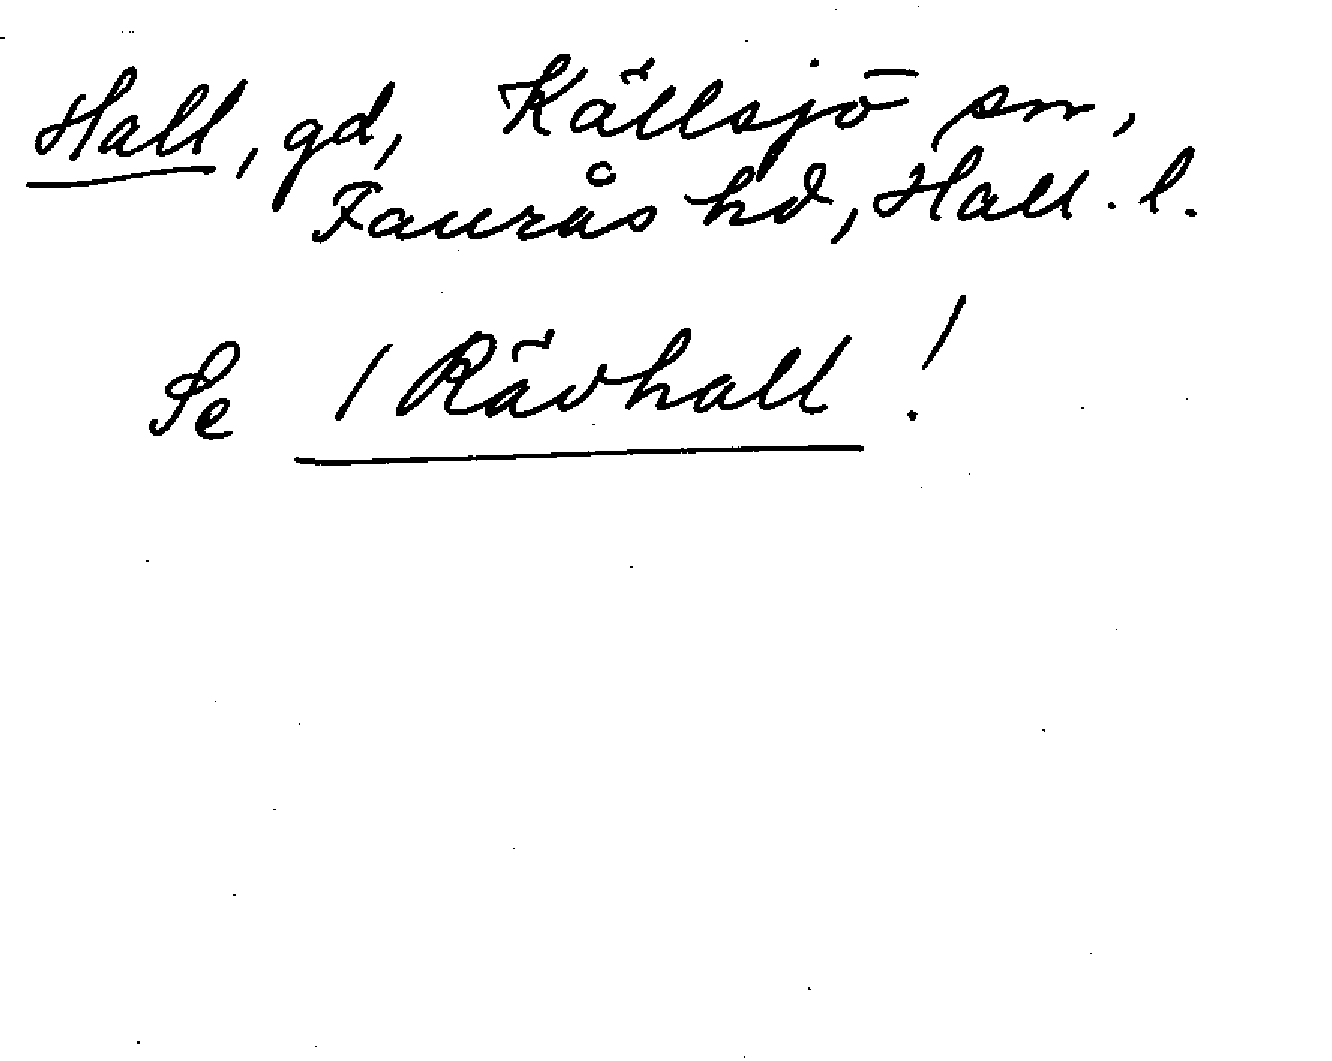 Hall, gd, Källsjö sn,
Faurås hd, Hall. l.
Se 1 Rävhall!